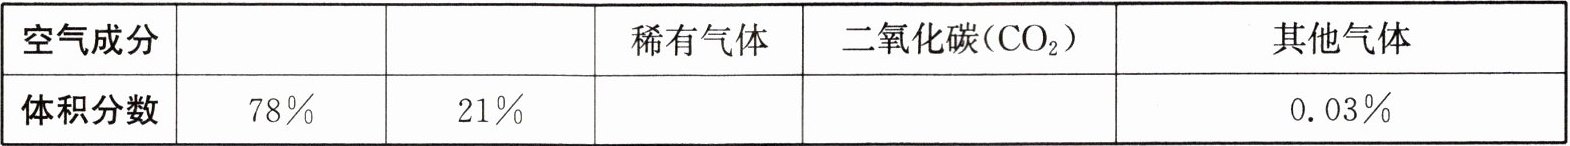 空气成分 稀有气体 二氧化碳(CO₂) 其他气体
体积分数 78% 21% 0.03%